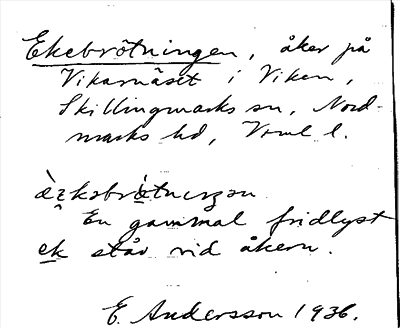 Ekebrötningen, åker på
Vikarnäset i Viken,
Skillingmarks sn, Nord-
marks hd, Verml l.
En gammal fridlyst
ek står vid åkern.
E. Andersson 1936.